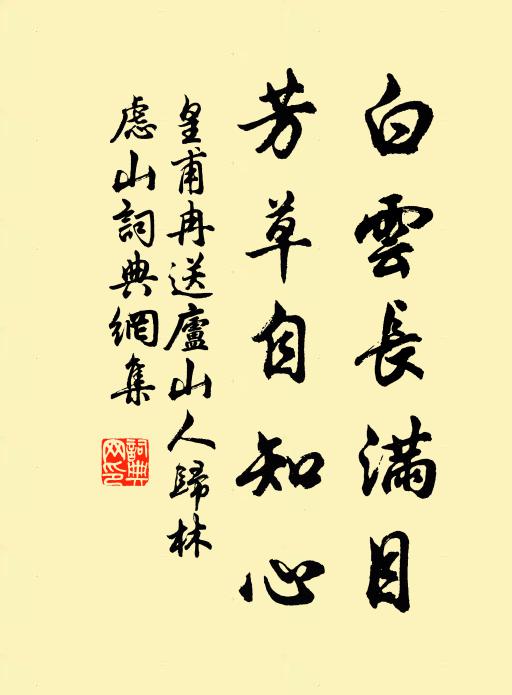 白雲長滿目
芳草自知心
皇甫冉送廬山人歸林
慮山詞典網集
詞典
网印